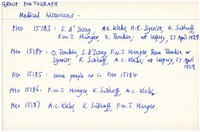 GROUP PHOTOGRAPH
Medical historians.
PHO 15183: S. d'Irsay, A.C. Klebs, H.E. Sigerist, K. Sudhoff
F.W.T. Hunger, O. Temkin, at Leipzig, 27 April 1929
PHO 15184: O. Temkin, S. d'Irsay, F.W.T. Hunger
Sigerist, K. Sudhoff, A.C. Klebs, at Leipzig, 27 April
1929
PHO 15185: same people as in PHO 15184
PHO 15186: F.W.T. Hunger, K. Sudhoff, A.C. Klebs.
PHO 15187: A.C. Klebs, K. Sudhoff, F.W.T. Hunger.